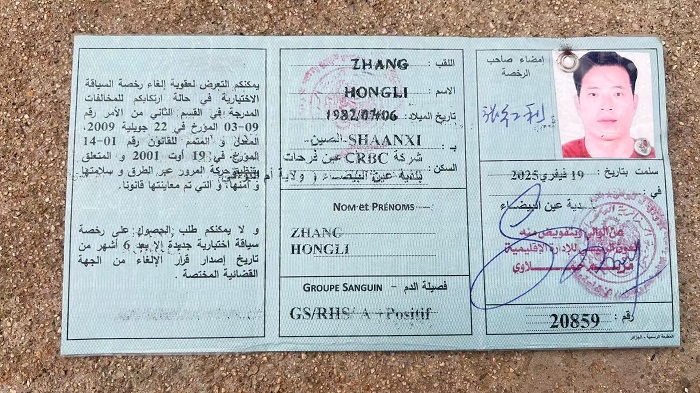 يمكنكم التعرض لعقوبة إلغاء رخصة السياقة
الاختبارية في حالة ارتكابكم للمخالفات
المدرجة في القسم الثاني من الأمر رقم
09-03 المؤرخ في 22 جويلية 2009،
المعدل و المتمم للقانون رقم 01-14
المؤرخ في 19 أوت 2001 و المتعلق
بتنظيم حركة المرور عبر الطرق و سلامتها
و أمنها، و التي تم معاينتها قانونا.
و لا يمكنكم طلب الحصول على رخصة
سياقة اختبارية جديدة إلا بعد 6 أشهر من
تاريخ إصدار قرار الإلغاء من الجهة
القضائية المختصة
اللقب: ZHANG
الاسم: HONGLI
تاريخ الميلاد: 1982/07/06
بـ: SHAANXI الصين
السكن: شركة CRBC عين فرحات
بلدية عين البيضاء ولاية أم البواقي
NOM et PRÉNOMS
ZHANG
HONGLI
GROUPE SANGUIN - فصيلة الدم
GS/RHS/ A +Positif
إمضاء صاحب
الرخصة
张红利
سلمت بتاريخ: 19 فيفري 2025
في: بلدية عين البيضاء
عن الوالي وبتفويض منه
للإدارة الإقليمية
رقم: 20859